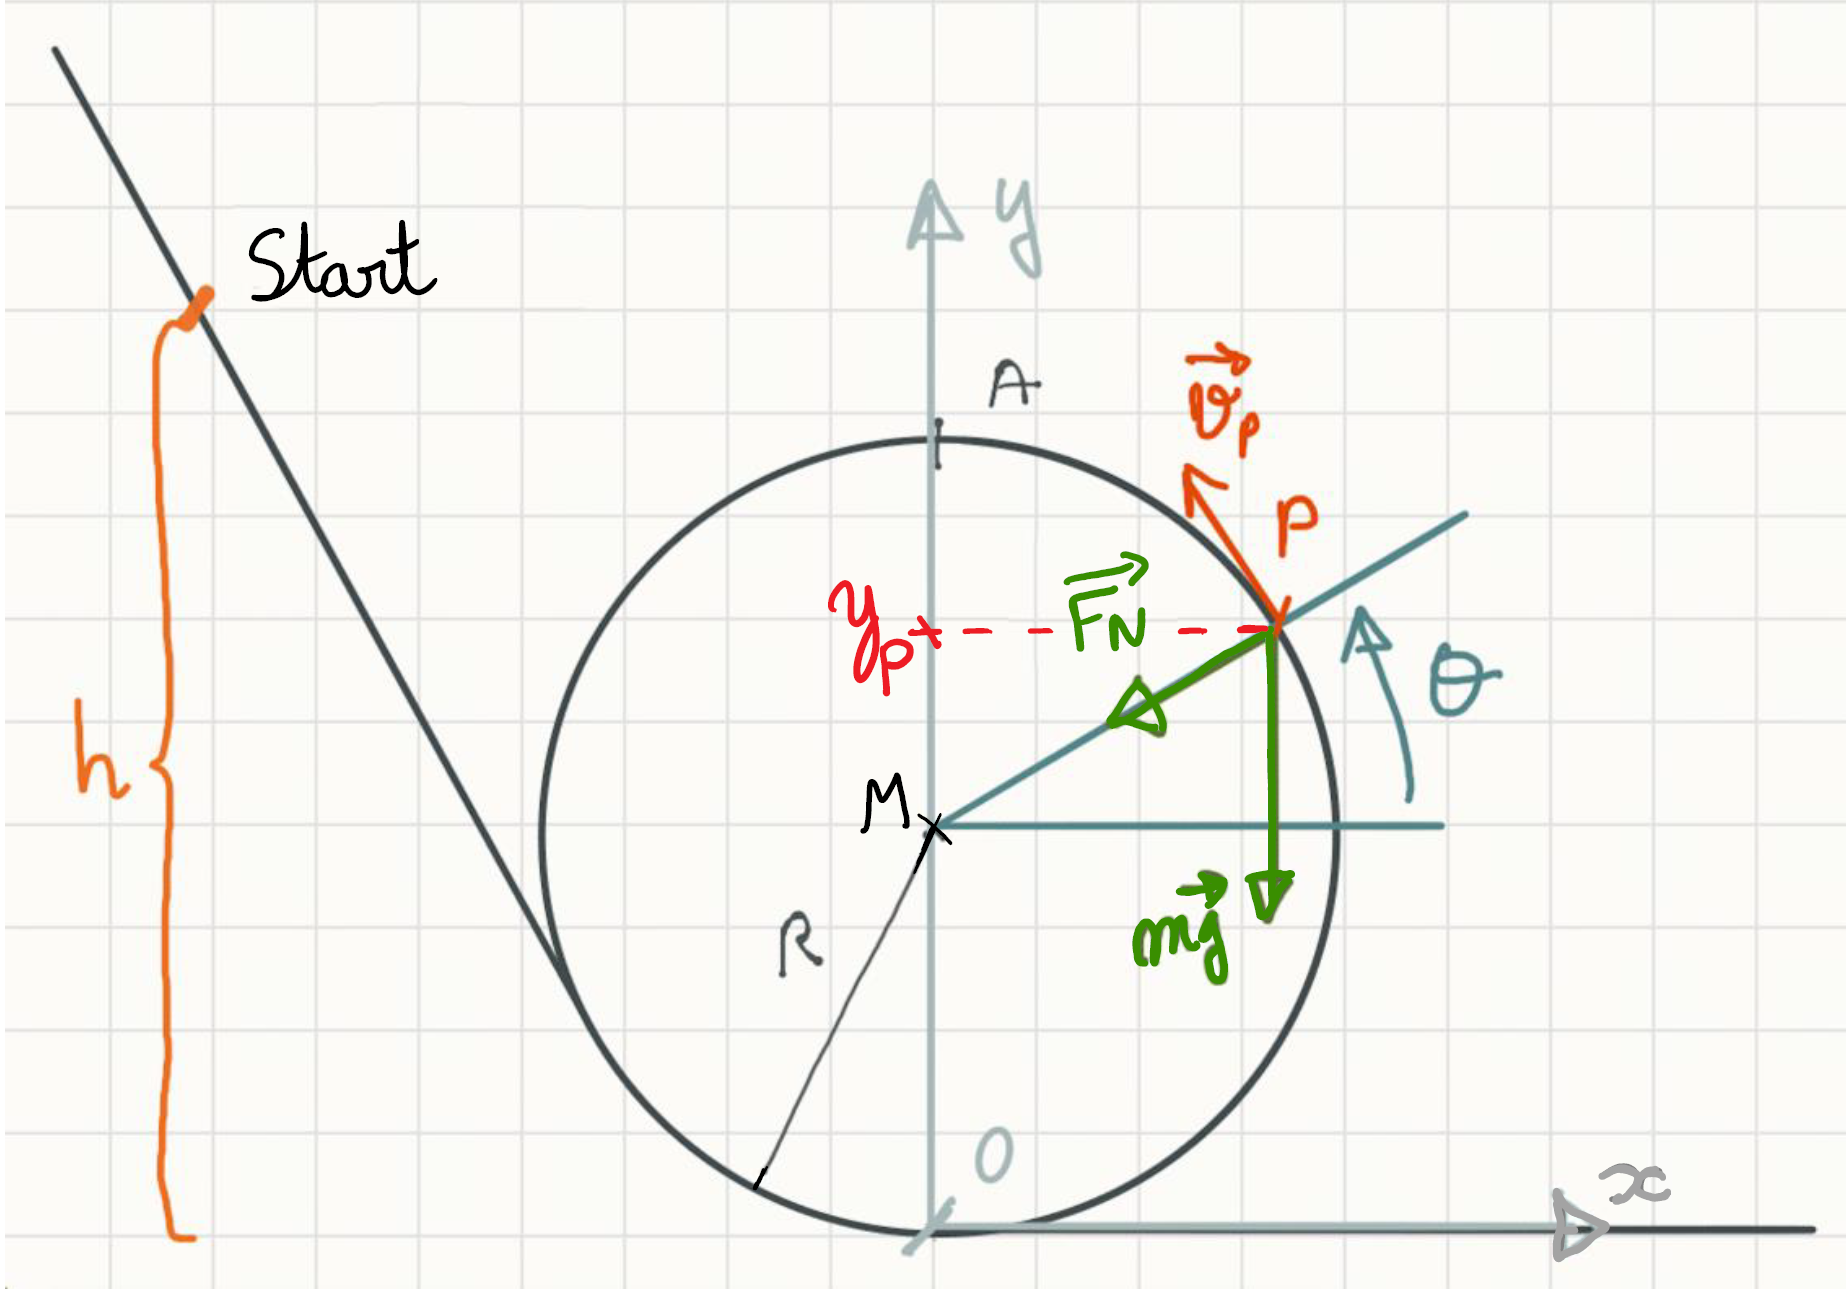 Start
y
A
v⃗ₚ
P
F⃗_N
yₚ
θ
h
M
R
mg⃗
O
x